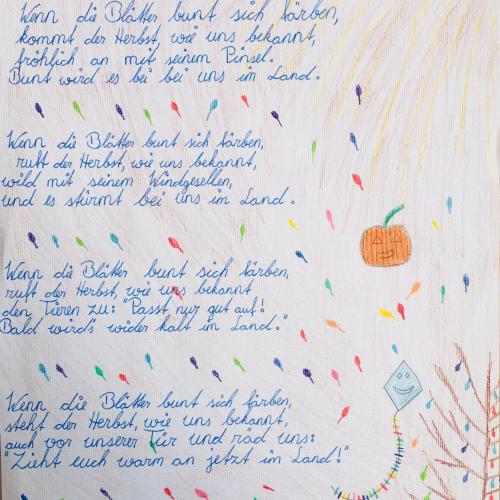 Wenn die Blätter bunt sich färben,
kommt der Herbst, wie uns bekannt,
fröhlich an mit seinem Pinsel.
Bunt wird es bei bei uns im Land.
Wenn die Blätter bunt sich färben,
ruft der Herbst, wie uns bekannt,
wild mit seinem Windgesellen,
und es stürmt bei uns im Land.
Wenn die Blätter bunt sich färben,
ruft der Herbst, wie uns bekannt
den Tieren zu: "Passt nur gut auf!
Bald wird's wider kalt im Land."
Wenn die Blätter bunt sich färben,
steht der Herbst, wie uns bekannt,
auch vor unserer Tür und räd uns:
"Zieht euch warm an jetzt im Land!"